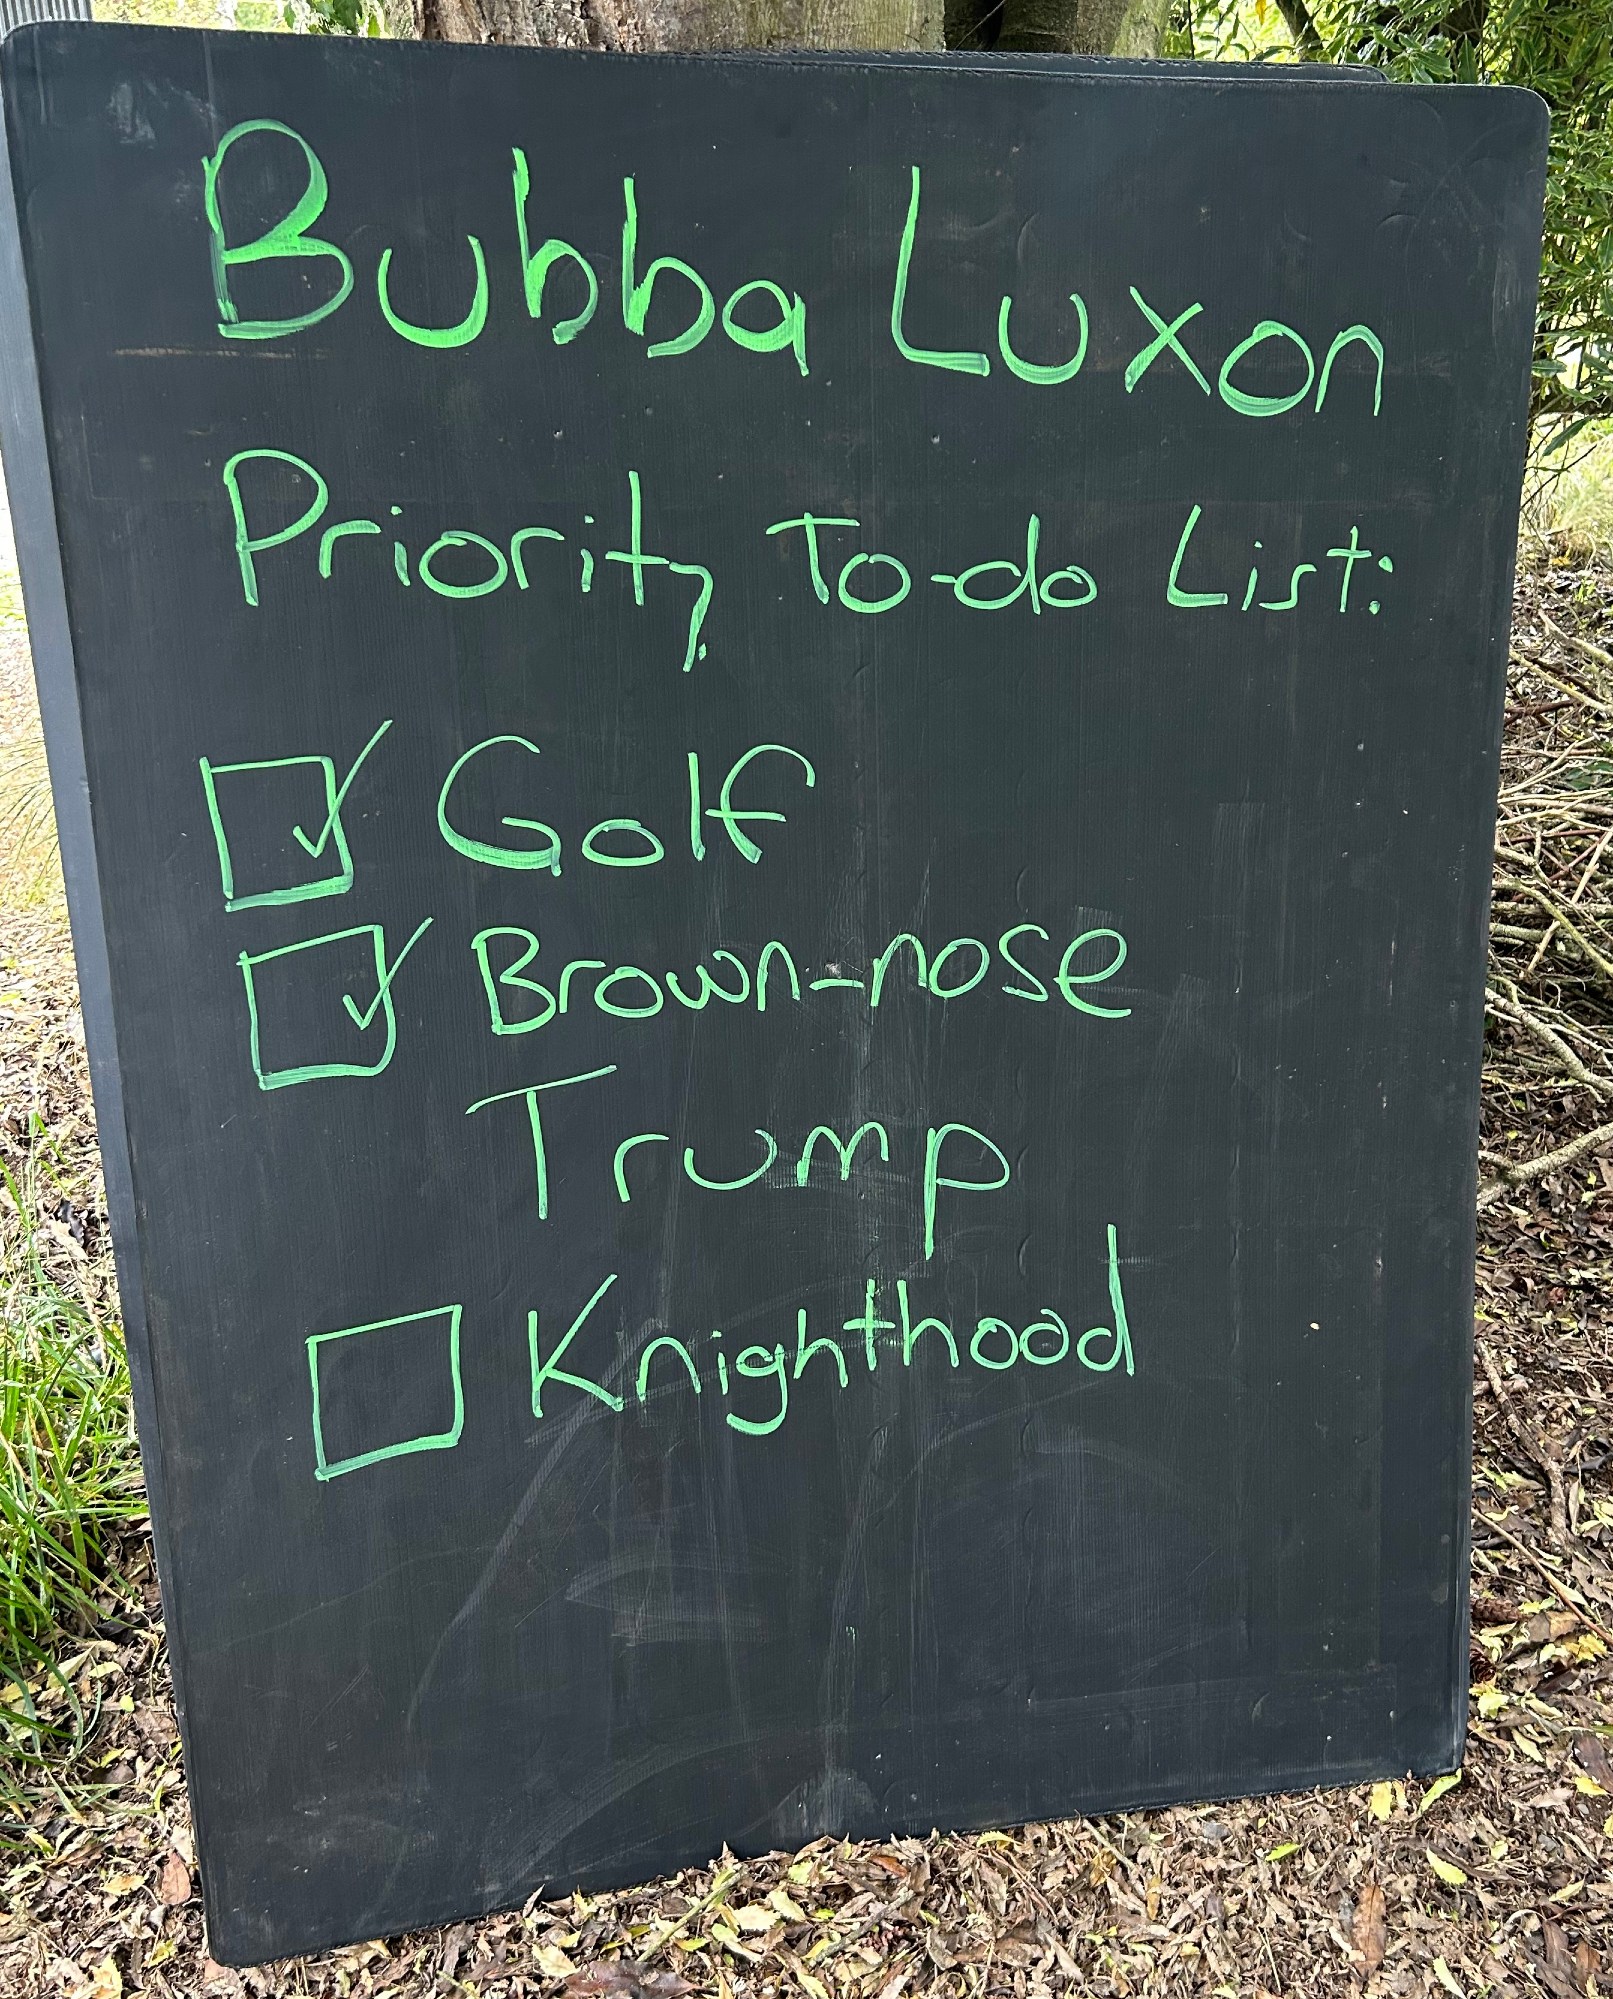 Bubba Luxon
Priority To-do List:
Golf
Brown-nose
Trump
Knighthood